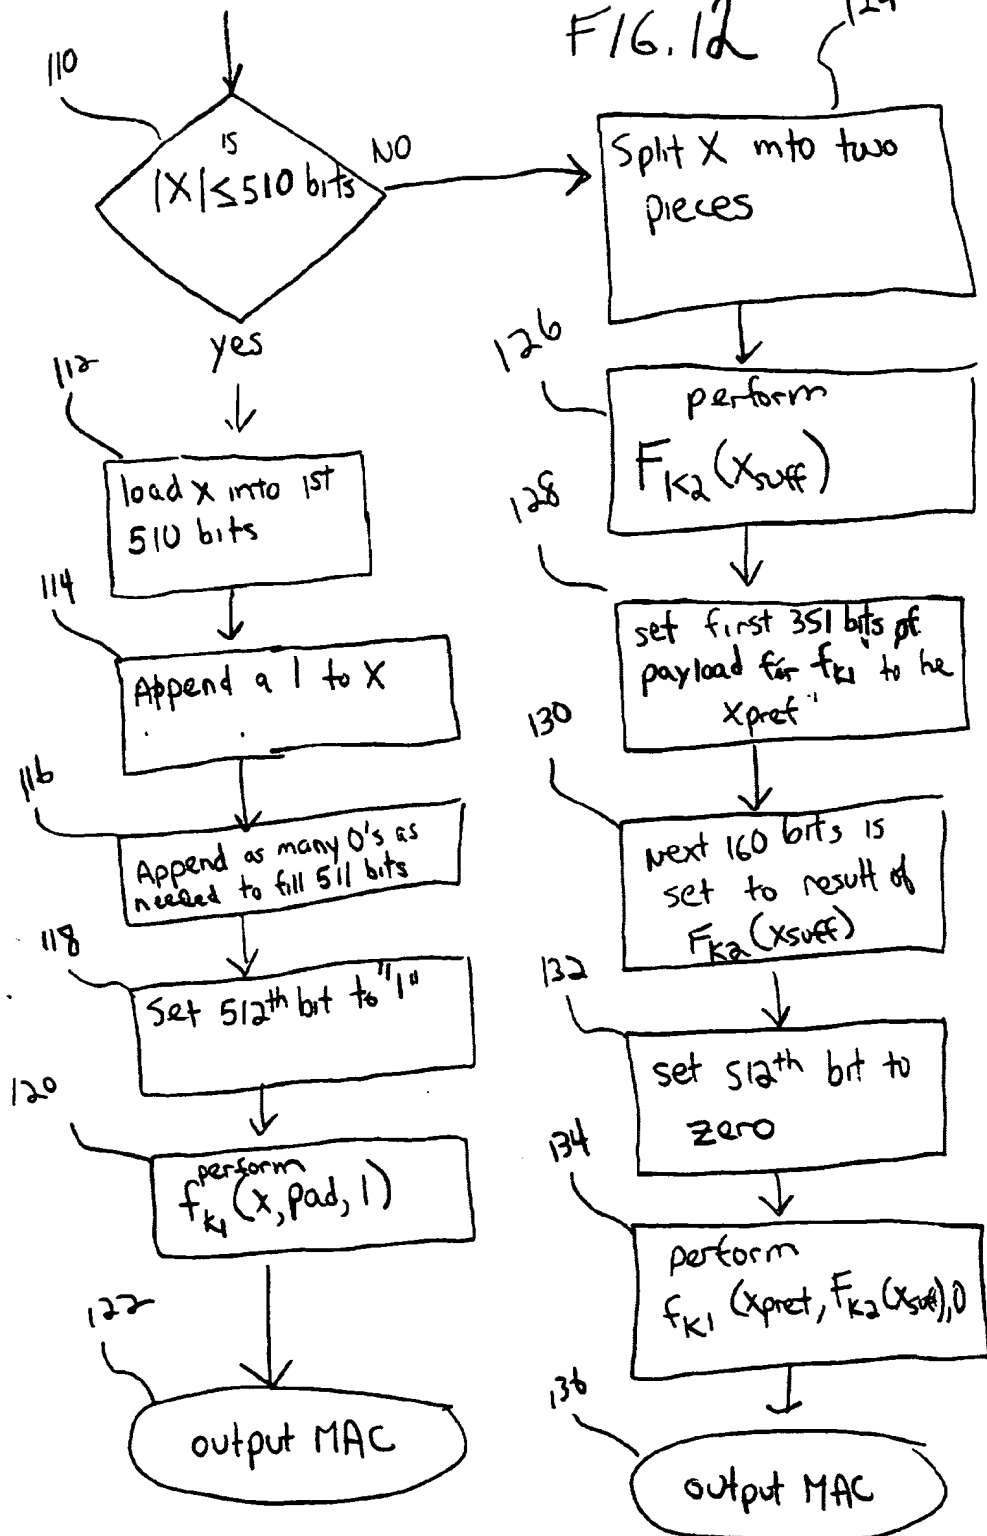 FIG. 12
110
is
|X| ≤ 510 bits
NO
yes
112
load x into 1st
510 bits
114
Append a 1 to X
116
Append as many 0's as
needed to fill 511 bits
118
Set 512th bit to "1"
120
perform
fK1 (x, pad, 1)
122
output MAC
124
Split X into two
pieces
126
perform
FK2 (Xsuff)
128
set first 351 bits of
payload for fK1 to be
Xpref
130
Next 160 bits is
set to result of
FK2 (Xsuff)
132
set 512th bit to
zero
134
perform
fK1 (Xpref, FK2(Xsuff), 0
136
output MAC